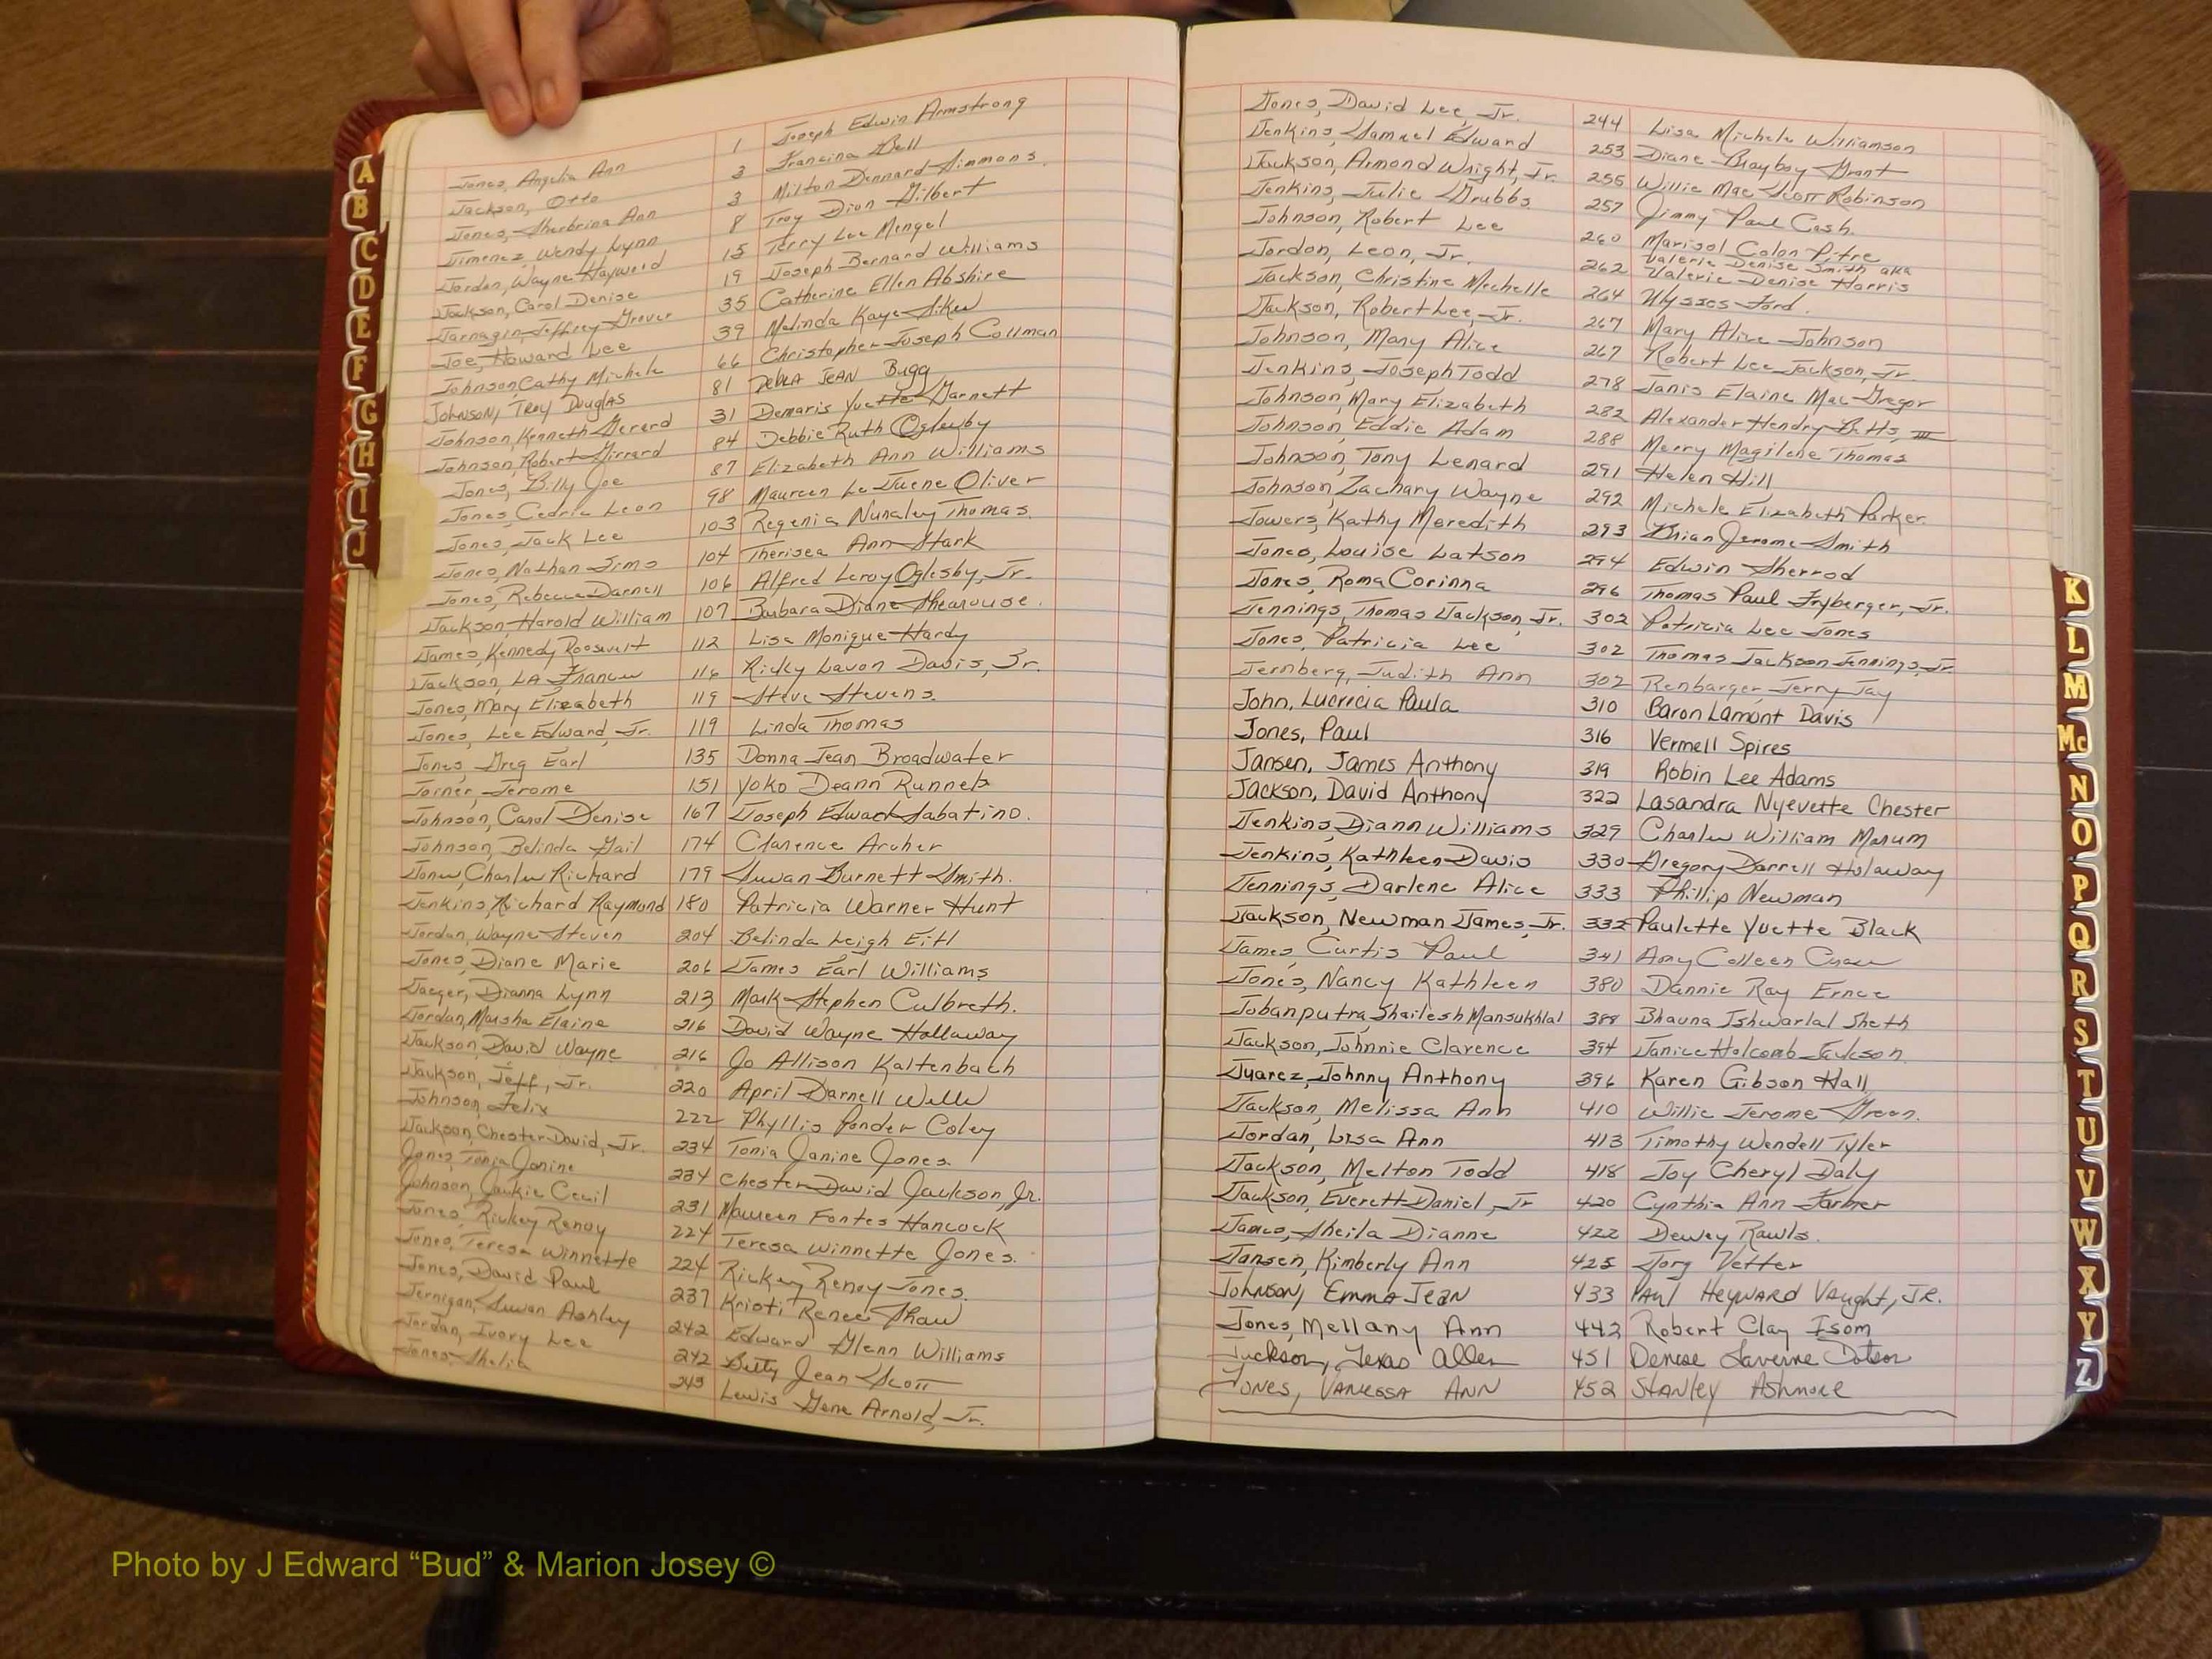 Jones, Angelia Ann 1 Joseph Edwin Armstrong
Jackson, Otto 3 Francina Bell
Jones, Sherbrina Ann 3 Milton Dennard Simmons.
Jimenez, Wendy Lynn 8 Troy Dion Gilbert
Jordan, Wayne Hayward 15 Terry Lee Mengel
Jackson, Carol Denise 19 Joseph Bernard Williams
Jarnagin, Jeffrey Grover 35 Catherine Ellen Abshire
Joe, Howard Lee 39 Malinda Kaye Sikes
Johnson, Cathy Michele 66 Christopher Joseph Collman
Johnson, Troy Douglas 81 Debra Jean Bugg
Johnson, Kenneth Gerard 31 Demaris Yvette Garnett
Johnson, Robert Girrard 84 Debbie Ruth Oglesby
Jones, Billy Joe 87 Elizabeth Ann Williams
Jones, Cedric Leon 98 Maureen Le Juene Oliver
Jones, Jack Lee 103 Regenia Nunaley Thomas.
Jones, Nathan Sims 104 Therisea Ann Stark
Jones, Rebecca Darnell 106 Alfred Leroy Oglesby, Jr.
Jackson, Harold William 107 Barbara Diane Shearouse.
James, Kennedy Roosevelt 112 Lisa Monique Hardy
Jackson, LA France 116 Ricky Lavon Davis, Jr.
Jones, Mary Elizabeth 119 Steve Stevens.
Jones, Lee Edward, Jr. 119 Linda Thomas
Jones, Greg Earl 135 Donna Jean Broadwater
Joiner, Jerome 151 Yoko Deann Runnels
Johnson, Carol Denise 167 Joseph Edward Sabatino.
Johnson, Belinda Gail 174 Clarence Archer
Jones, Charles Richard 179 Susan Burnett Smith.
Jenkins, Richard Raymond 180 Patricia Warner Hunt
Jordan, Wayne Steven 204 Belinda Leigh Eitl
Jones, Diane Marie 206 James Earl Williams
Jaeger, Dianna Lynn 213 Mark Stephen Culbreth.
Jordan, Marsha Elaine 216 David Wayne Hollaway
Jackson, David Wayne 216 Jo Allison Kaltenbach
Jackson, Jeff, Jr. 220 April Darnell Wells
Johnson, Felix 222 Phyllis Ponder Coley
Jackson, Chester David, Jr. 234 Tonia Janine Jones.
Jones, Tonia Janine 234 Chester David Jackson, Jr.
Johnson, Jackie Cecil 231 Maureen Fontes Hancock
Jones, Rickey Renoy 224 Teresa Winnette Jones.
Jones, Teresa Winnette 224 Rickey Renoy Jones.
Jones, David Paul 237 Kristi Renee Shaw
Jernigan, Susan Ashley 242 Edward Glenn Williams
Jordan, Ivory Lee 242 Betty Jean Scott
Jones, Shelia 243 Lewis Gene Arnold, Jr.
Jones, David Lee, Jr. 244 Lisa Michele Williamson
Jenkins, Samuel Edward 253 Diane Brayboy Grant
Jackson, Armond Wright, Jr. 255 Willie Mae Scott Robinson
Jenkins, Julie Grubbs 257 Jimmy Paul Cash.
Johnson, Robert Lee 260 Marisol Colon Pitre
Jordon, Leon, Jr. 262 Valerie Denise Smith aka
Valerie Denise Harris
Jackson, Christine Mechelle 264 Ulysses Ford.
Jackson, Robert Lee, Jr. 267 Mary Alice Johnson
Johnson, Mary Alice 267 Robert Lee Jackson, Jr.
Jenkins, Joseph Todd 278 Janis Elaine MacGregor
Johnson, Mary Elizabeth 282 Alexander Hendry Betts, III
Johnson, Eddie Adam 288 Merry Magilene Thomas
Johnson, Tony Lenard 291 Helen Hill
Johnson, Zachary Wayne 292 Michele Elizabeth Parker
Jowers, Kathy Meredith 293 Brian Jerome Smith
Jones, Louise Latson 294 Edwin Sherrod
Jones, Roma Corinna 296 Thomas Paul Fryberger, Jr.
Jennings, Thomas Jackson, Jr. 302 Patricia Lee Jones
Jones, Patricia Lee 302 Thomas Jackson Jennings, Jr.
Jernberg, Judith Ann 302 Renbarger Jerry Jay
John, Lucricia Paula 310 Baron Lamont Davis
Jones, Paul 316 Vermell Spires
Jansen, James Anthony 319 Robin Lee Adams
Jackson, David Anthony 322 Lasandra Nyevette Chester
Jenkins, Diann Williams 329 Charles William Marum
Jenkins, Kathleen Davis 330 Gregory Darrell Holaway
Jennings, Darlene Alice 333 Phillip Newman
Jackson, Newman James, Jr. 335 Paulette Yvette Black
James, Curtis Paul 341 Amy Colleen
Jones, Nancy Kathleen 380 Dannie Ray Ernce
Jobanputra, Shailesh Mansukhlal 388 Bhavna Ishwarlal Sheth
Jackson, Johnnie Clarence 394 Janice Holcomb Jackson
Juarez, Johnny Anthony 396 Karen Gibson Hall
Jackson, Melissa Ann 410 Willie Jerome Green.
Jordan, Lisa Ann 413 Timothy Wendell Tyler
Jackson, Melton Todd 418 Joy Cheryl Daly
Jackson, Everett Daniel, Jr 420 Cynthia Ann Farmer
James, Sheila Dianne 422 Dewey Rawls.
Jansen, Kimberly Ann 425 Jorg Vetter
Johnson, Emma Jean 433 Paul Heyward Vaught, Jr.
Jones, Mellany Ann 442 Robert Clay Isom
Jackson, Texas Allen 451 Denese Laverne Dotson
Jones, Vanessa Ann 452 Stanley Ashmore
A
B
C
D
E
F
G
H
I
J
K
L
M
Mc
N
O
P
Q
R
S
T
U
V
W
X
Y
Z
Photo by J Edward “Bud” & Marion Josey ©